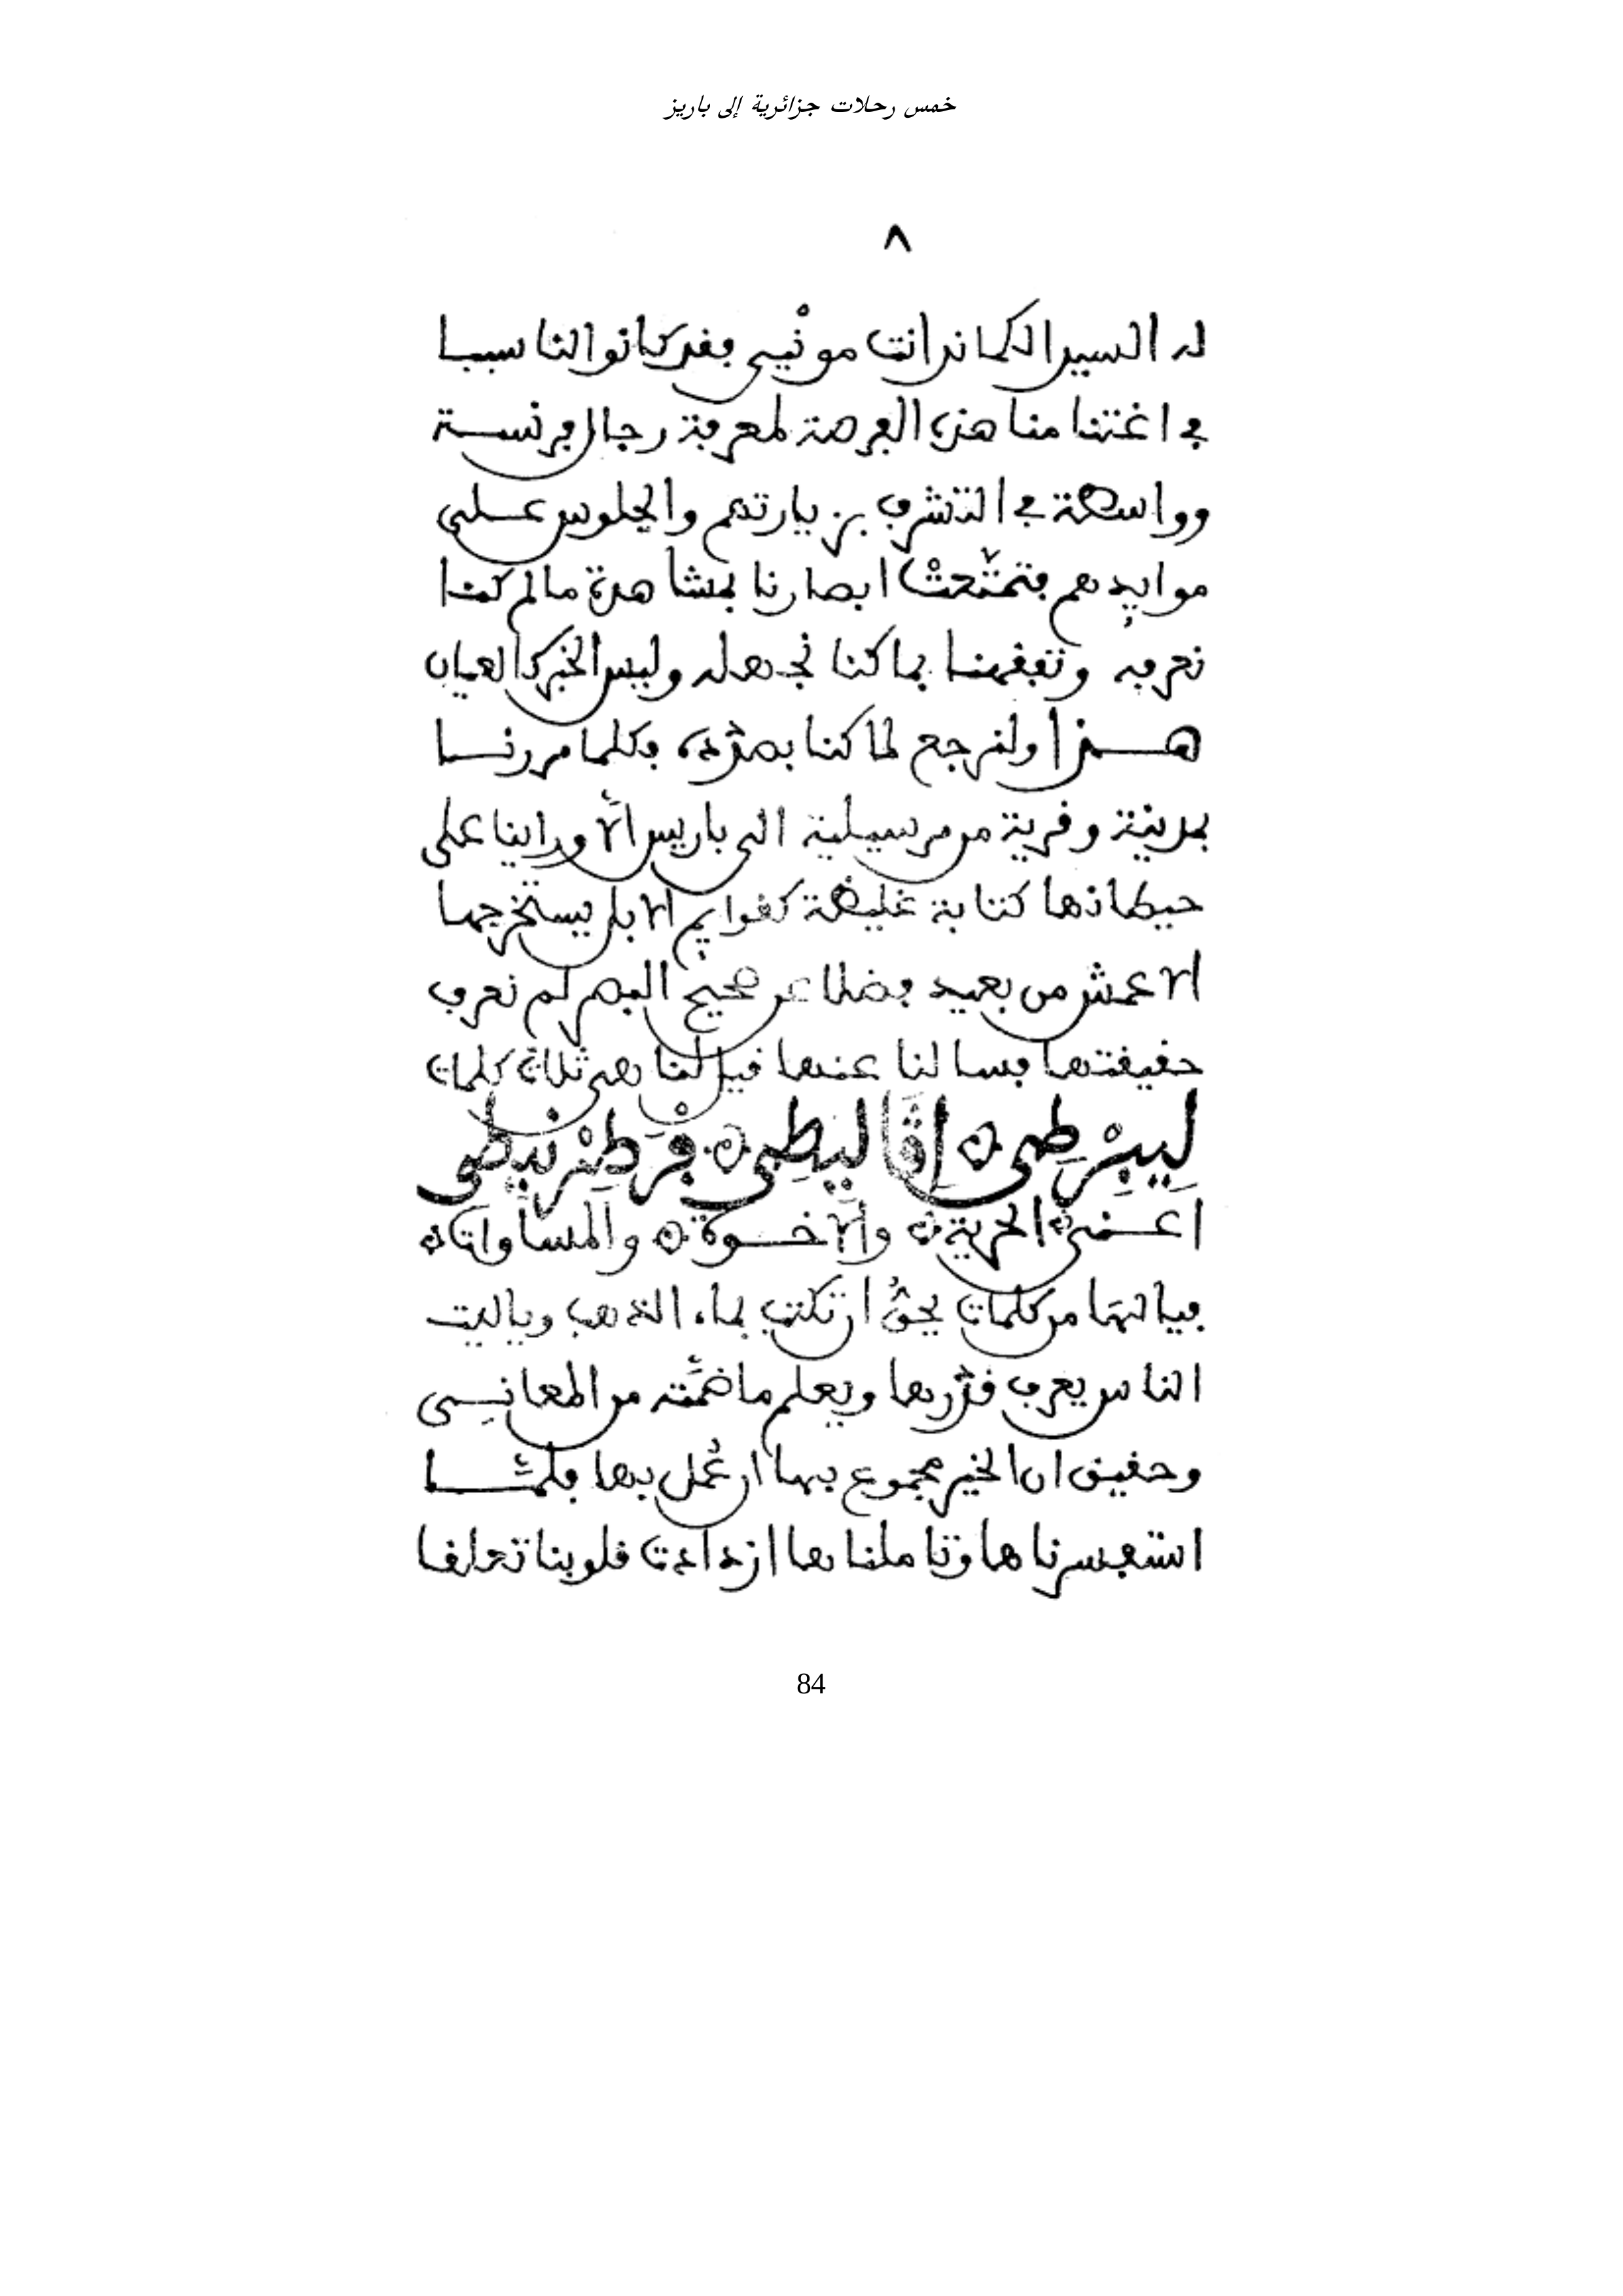 خمس رحلات جزائرية إلى باريز
٨
له السيد الكماندانت مونْيي فقد كانوا لنا سببا
في اغتنامنا هذه الفرصة لمعرفة رجال فرنسة
وواسطة في التشرف بزيارتهم والجلوس على
موايدهم فتمتّعتْ ابصارنا بمشاهدة ما لم كنا
نعرفه وتفقهنا بما كنا نجهله وليس الخبر كالعيان
هذا ولنرجع لما كنا بصدده فكلما مررنا
بمدينة وقرية من مرسيلية الى باريس الّا وراينا على
حيطانها كتابة غليظة كقوايم الابل يستخرجها
الاعمش من بعيد فضلا عن صحيح البصر لم نعرف
حقيقتها فسالنا عنها قيل لنا هي ثلاث كلمات
لِيبِرْطِي ۞ اِقَالِيطِي ۞ فْرَطِرْنِيطِي
اعني ۞ الحرية ۞ والاخوة ۞ والمساوات ۞
فيا لهما من كلمات يحقُّ ان تكتب بماء الذهب وياليت
الناس يعرف قدْرها ويعلم ما ضمَّته من المعانِي
وحقيق ان الخير مجموع بها ان عُمل بها فلمّا
استفسرناها وتاملناها ازدادت قلوبنا تعلقا
84